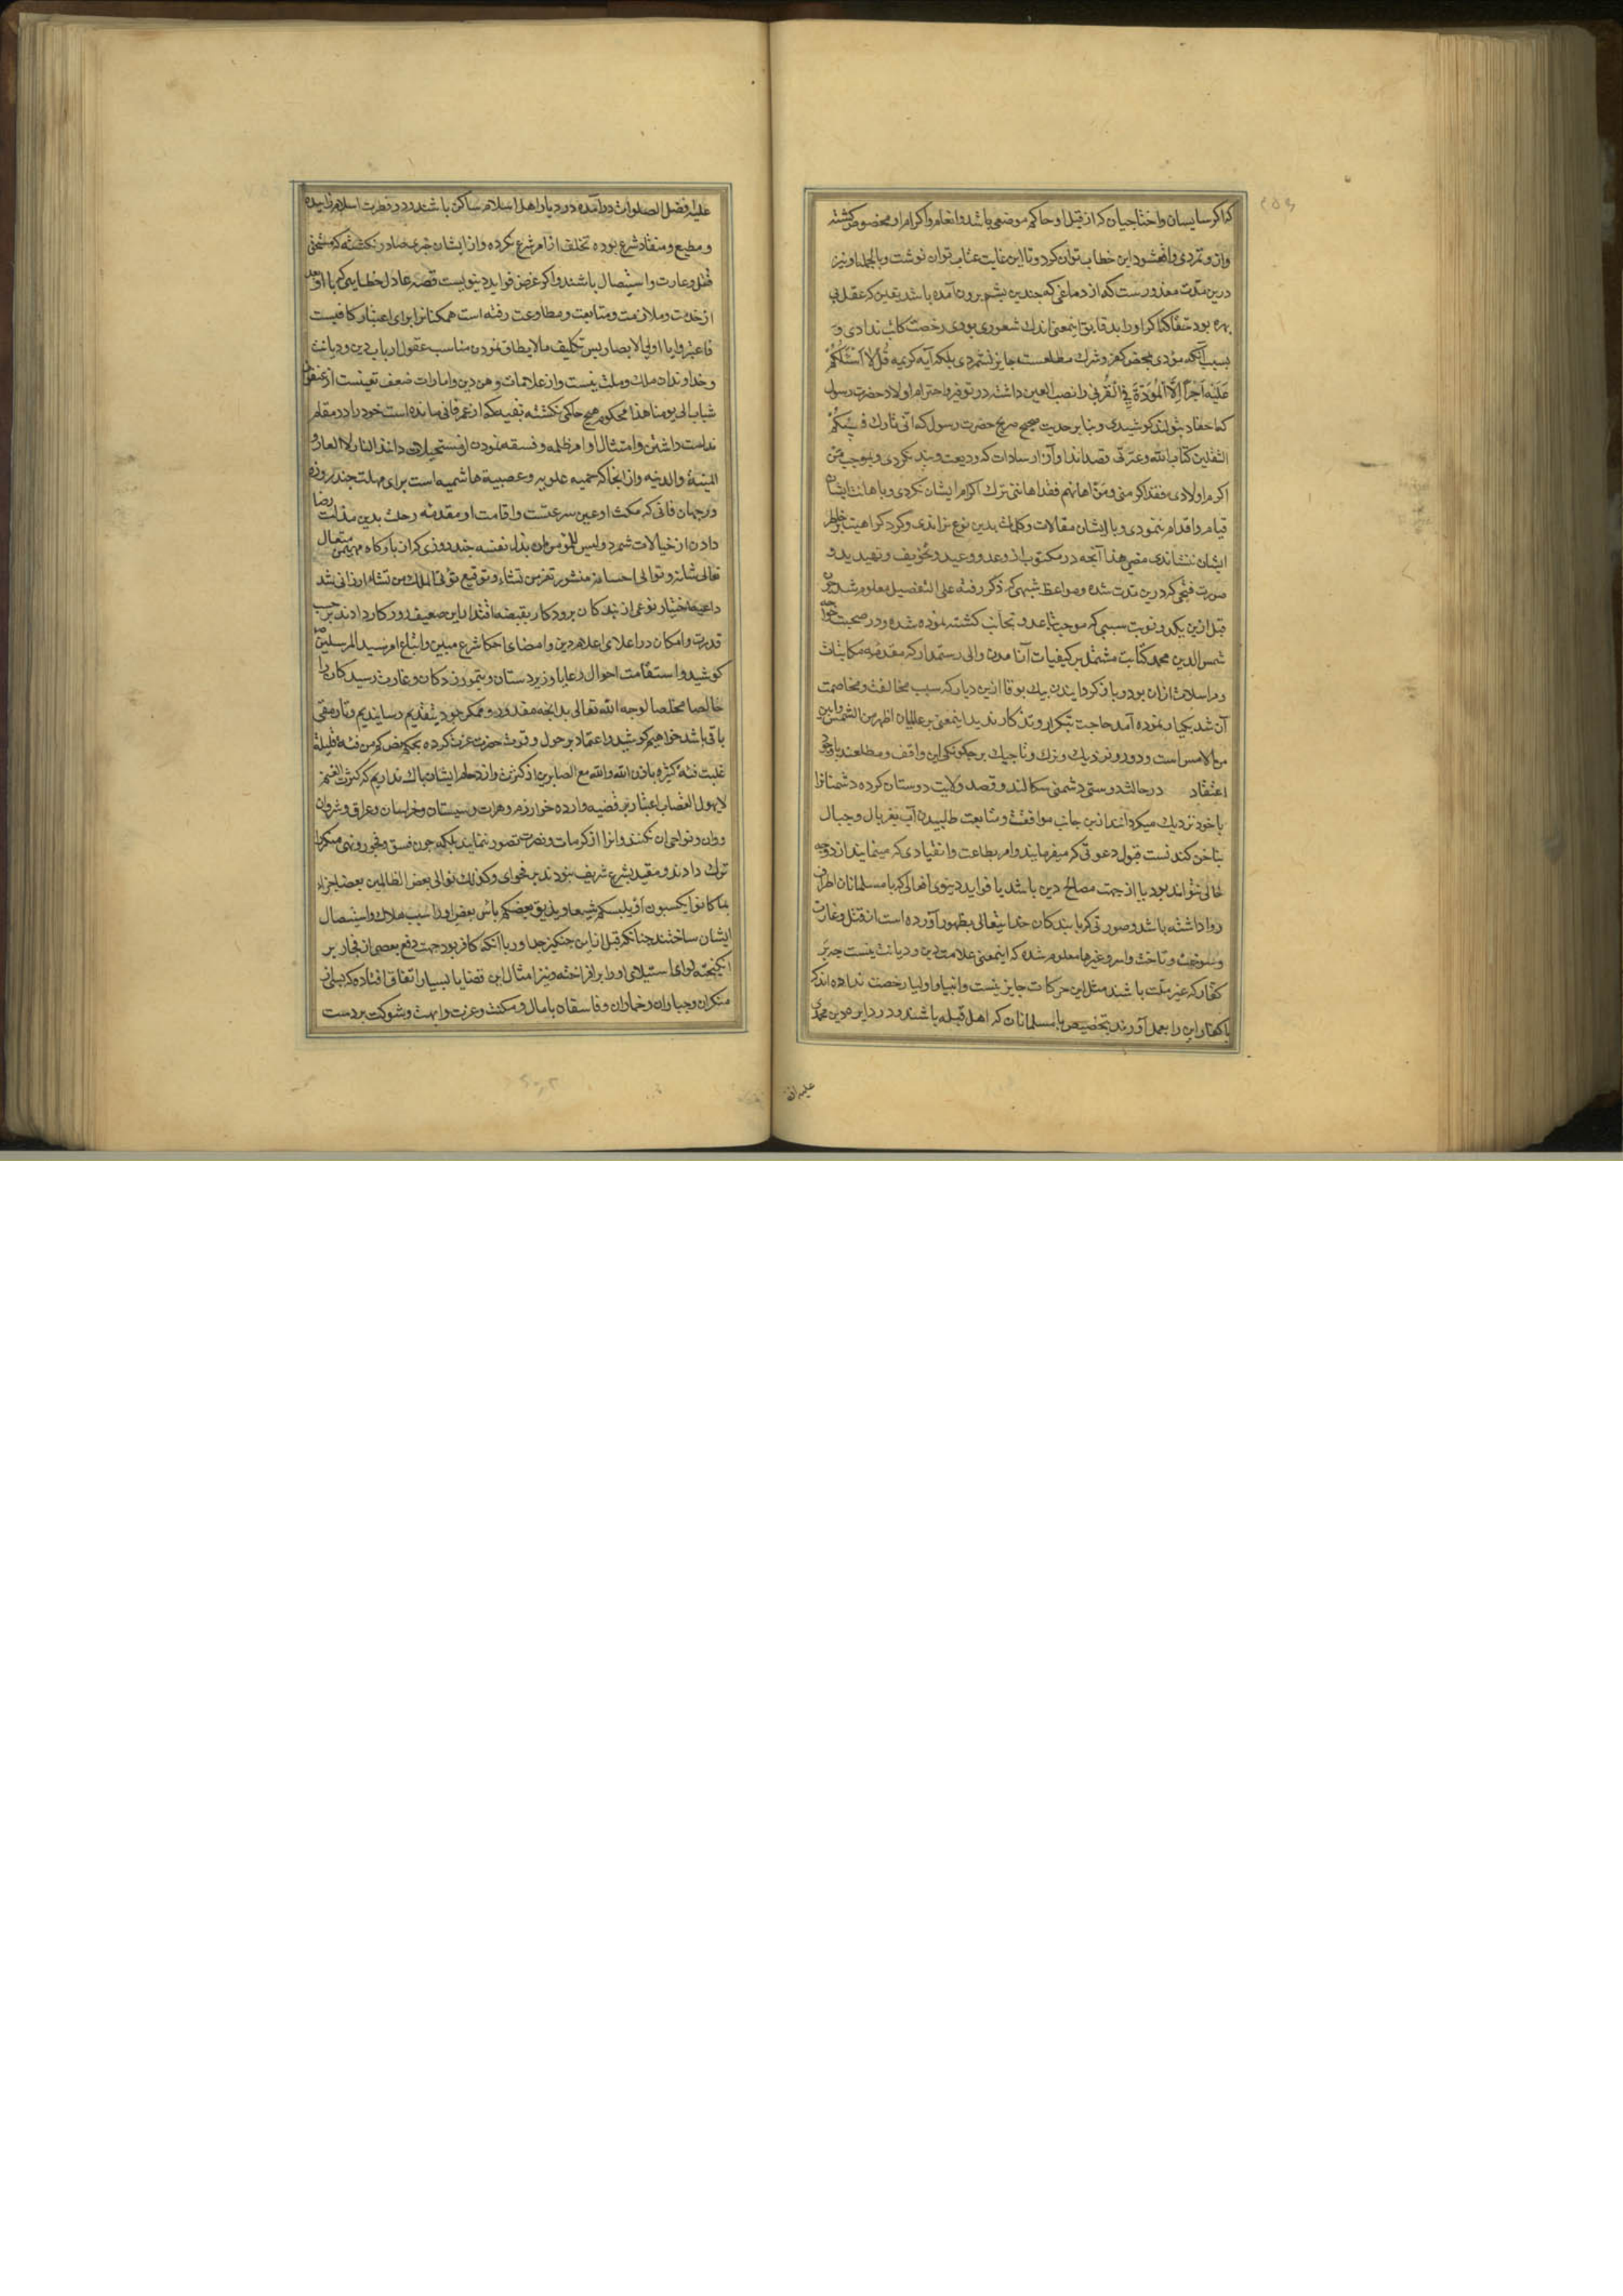 که اگر سایسان واختاجیان که از قبل او حاکم موضعی باشد وانعام واکرام او مخصوص کشته
وازو تمردی واقع شود این خطاب توان کرد وتا این غایت عتاب توان نوشت وبالجمله او نیز
درین مدت معذورست که از دماغی که چندین بشم برون آمده باشد یقین که عقل بی
بهره بود حقا که اکر او را بدقایق اینمعنی اندک شعوری بودی رخصت کاتب ندادی و
بسبب آنکه مؤدی بمحض کفر وشرک مطلقست جایز نشمردی بلکه آیه کریمه قُلْ لا اَسْئَلُکُمْ
عَلَیْهِ اَجْرًا اِلَّا الْمَوَدَّةَ فِی الْقُرْبی را نصب العین داشته در توقیر واحترام اولاد حضرت رسول
کما حقاد بتولند کوشیدی وبنابر حدیث صحیح صریح حضرت رسول که انی تارک فیکم
الثقلین کتاب الله وعترتی قصد اندا وآزار سادات که ودیعت ویند نکردی وبموجب من
اکرم اولادی فقد اکرمنی ومن اهانهم فقد اهاننی ترک اکرام ایشان نکردی وباهانت ایشان
قیام واقدام ننمودی وبا ایشان مقالات وکلمات بدین نوع نراندی وکرد کراهیت بر خاطر
ایشان ننشاندی مضی هذا آنچه در مکتوب از وعد ووعید وتخویف وتهدید و
صورت فتحی که درین مدت شده ومواعظ شبهی که ذکر رفته علی التفصیل معلوم شد چون
قبل ازین یکدو نوبت سببی که موجب تباعد وتجانب کشته نموده شده ودر صحبت خواجه
شمس الدین محمد کتابت مشتمل بر کیفیات آنا مدن والی رستمدار که مقدمه مکاتبات
ومراسلات ازان بود وباز کردانیدن بیک بوقا ازین دیار که سبب مخالفت ومخاصمت
آن شد یکبار نموده آمد حاجت بتکرار وتذکار ندید اینمعنی بر عالمیان اظهر من الشمس وابین
من الامس است ودور ونزدیک وترک وتاجیک بر چکونکی این واقف ومطلعند باوجود
اعتقاد در حالتند دوستی دشمنی سکالند وقصد ولایت دوستان کرده دشمنانرا
با خود نزدیک میکردانند ازین جانب موافقت ومتابعت طلبیدن آب بغربال وجبال
بناخن کندنست قبول دعوتی که میفرمایند وامر بطاعت وانقیادی که مینمایند از دو وجه
خالی نتواند بود یا از جهت مصالح دین باشد یا فواید دینوی افعالی که با مسلمانان اطراف
روا داشته باشد وصورتی که با بندکان خدایتعالی بظهور آورده است از قتل وغارت
وسوختن وتاخت واسر وغیرها معلوم شده که اینمعنی علامت دین ودیانت نیست چه بر
کفار که غیر ملت باشند مثل این حرکات جایز نیست وانبیا واولیا رخصت نداده اند که
با کفار این را بعمل آورند بتخصیص با مسلمانان که اهل قبله باشند ودر دایره دین محمدی
علیه افضل
علیه افضل الصلوات درآمده در دیار اهل اسلام ساکن باشند ودر فطرت اسلام زاییده
ومطیع ومنقاد شرع بوده تخلف از امر شرع نکرده واز ایشان جرمی صادر نکشته که مستحق
قتل وغارت واستیصال باشند واکر غرض فواید دینویست قصه عادل خطایی که با او بعد
از خدمت وملازمت ومتابعت ومطاوعت رفته است همکنانرا برای اعتبار کافیست
فاعتبروا یا اولی الابصار پس تکلیف ما لا یطاق نمودن مناسب عقول ارباب دین ودیانت
وخداوندان ملک وملت نیست واز علامات وهن دین وامارات ضعف تعینست از عنفوان
شباب الی یومنا هذا محکوم هیچ حاکمی نکشته بقیه که از عمر فانی مانده است خود را در مقام
ندامت داشتن وامتثال اوامر ظلمه وفسقه نمودن از مستحیلات داند النار لا العار و
المنیة والدنیه واز آنجا که حمیه علویه وعصبیة هاشمیه است برای مهلت چند روزه
در جهان فانی که مکث او عین سرعتست واقامت او مقدمه رحلت بدین مذلت رضا
دادن از خیالات شمرد ولیس للمؤمن ان یذل نفسه چند روزی که از بارکاه مهیمن متعال
تعالی شانه وتوالی احسانه منشور تعز من تشاء وتوقیع تؤتی الملک من تشاء ارزانی شد
داعیه اختیار نوعی از بندکان پرودکار بقبضه اقتدار این ضعیف روزکار دادند بر حسب
قدرت وامکان در اعلای اعلام دین وامضای احکام شرع مبین واتباع امر سید المرسلین صلعم
کوشید واستقامت احوال رعایا وزیردستان ویتیم وزردکان وغارت رسیدکان را
خالصا مخلصا لوجه الله تعالی بدانچه مقدور وممکن بود بتقدیم رسانیدیم وتا رمقی
باقی باشد خواهیم کوشید واعتماد بر حول وقوت حضرت عزت کرده بحکم نص کم من فئة قلیلة
غلبت فئة کثیرة باذن الله والله مع الصابرین از کثرت وازدحام ایشان باک نداریم که کثرت الغنم
لا یهول القصاب اعتبار بر قضیه وارده خوارزم وهرات وسیستان وخراسان وعراق وشروان
ووان ونواحی آن نکنند وآنرا از کرامات ونصرت تصور ننمایند بلکه چون فسق وفجور ونهی منکر را
ترک دادند ومقید بشرع شریف نبودند بر فحوای وکذلک نولی بعض الظالمین بعضا جزاء
بما کانوا یکسبون أو یلبسکم شیعا ویذیق بعضکم باس بعض او را سبب هلاک واستیصال
ایشان ساختند چنانکه قبل ازین چنکیز جدا ورا با آنکه کافر بود جهت دفع بعضی از فجار بر
انکیخته لوای استیلای او را برافراخته ونیز امثال این قضایا بسیار اتفاق افتاده که بسی از
متکبران وجباران وخماران وفاسقان با مال ومکنت وعزت وابهت وشوکت بر دست